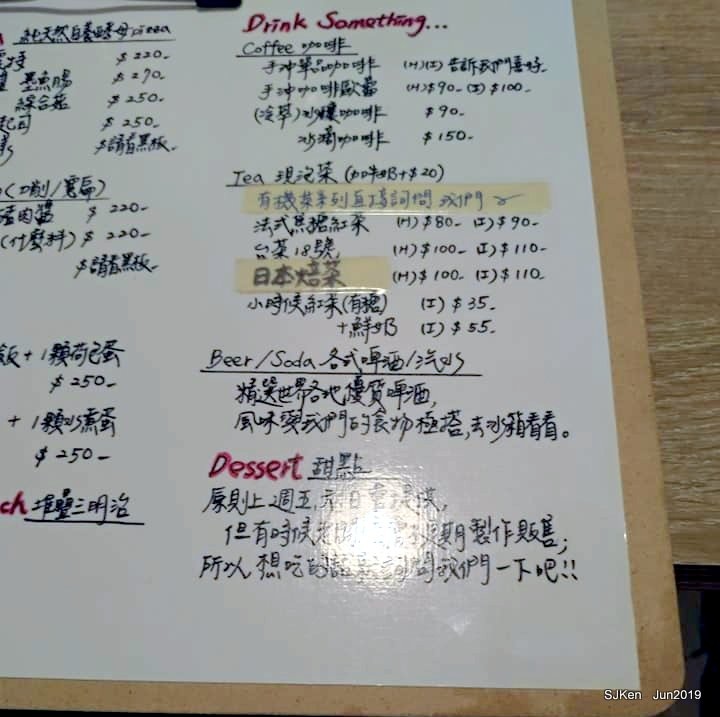 純天然自養酵母pizza
$220-
墨魚腸 $290-
綜合菇 $250-
起司 $250-
$請看黑板-
肉醬 $220-
(什麼料) $220-
$請看黑板-
飯+1顆荷包蛋
$250-
+1顆水煮蛋
$250-
ch 堆疊三明治
Drink Something...
Coffee 咖啡
手沖單品咖啡 (H)(I) 告訴我們喜好-
手沖咖啡歐蕾 (H)$90- (I)$100-
(冷萃)冰釀咖啡 $90-
冰滴咖啡 $150-
Tea 現泡茶 (加牛奶+$20)
有機茶系列直接詢問我們
法式黑糖紅茶 (H)$80- (I)$90-
台茶18號 (H)$100- (I)$110-
日本焙茶 (H)$100- (I)$110
小時候紅茶(有糖) (I)$35-
+鮮奶 (I)$55-
Beer/Soda 各式啤酒/汽水
精選世界各地優質啤酒,
風味與我們的食物極搭,去冰箱看看。
Dessert 甜點
原則上週五,六,日會提供,
但有時候 期製作販售;
所以想吃的話 詢問我們一下吧!!
SJKen Jun2019